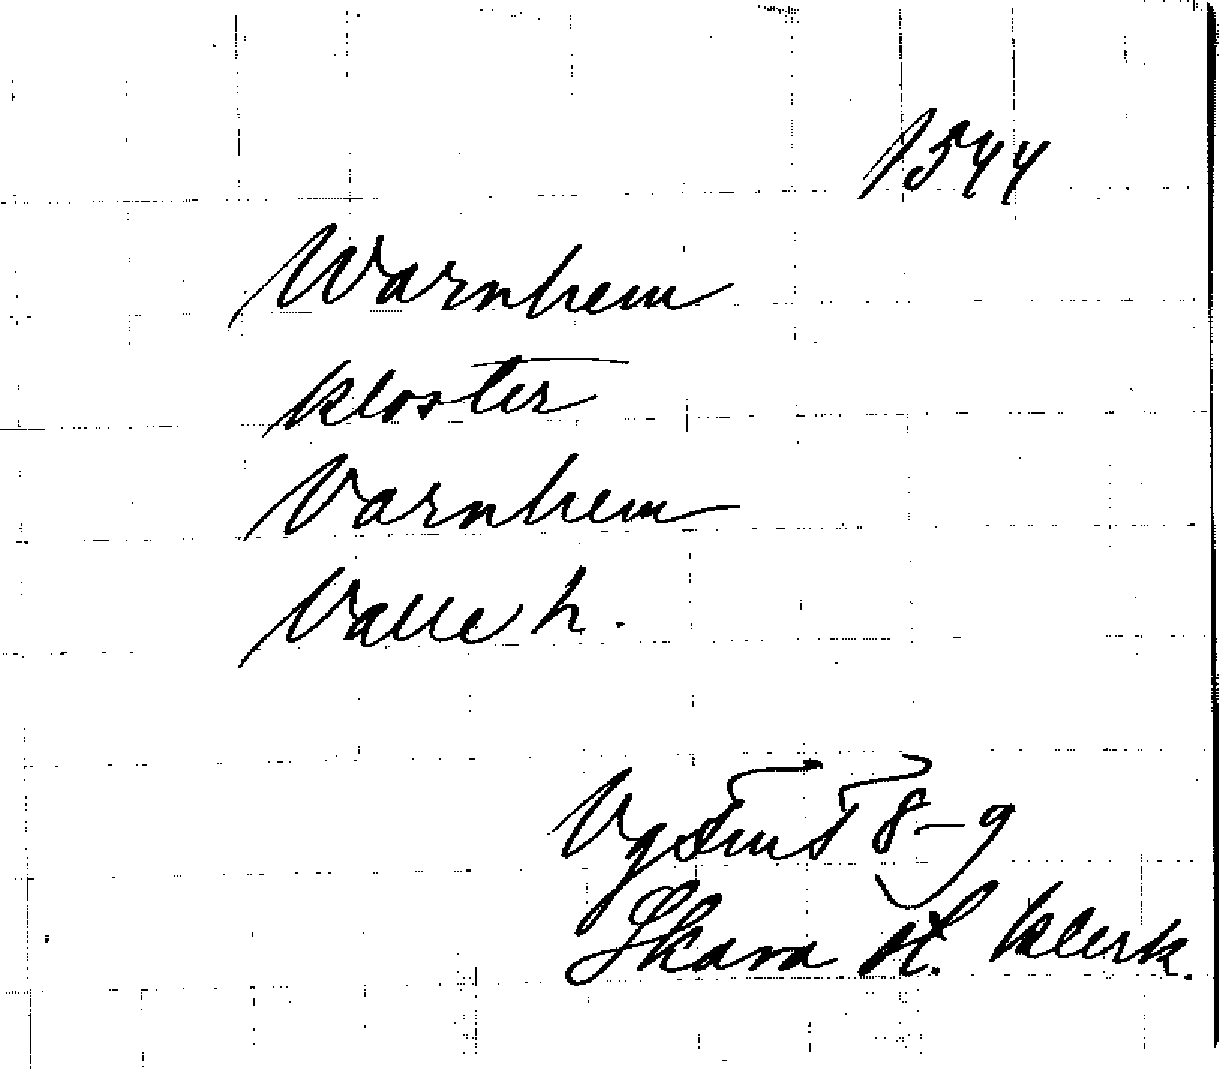 1544
Warnhem
kloster
Varnhem
Valle h.
8-9
Skara st. klerk.